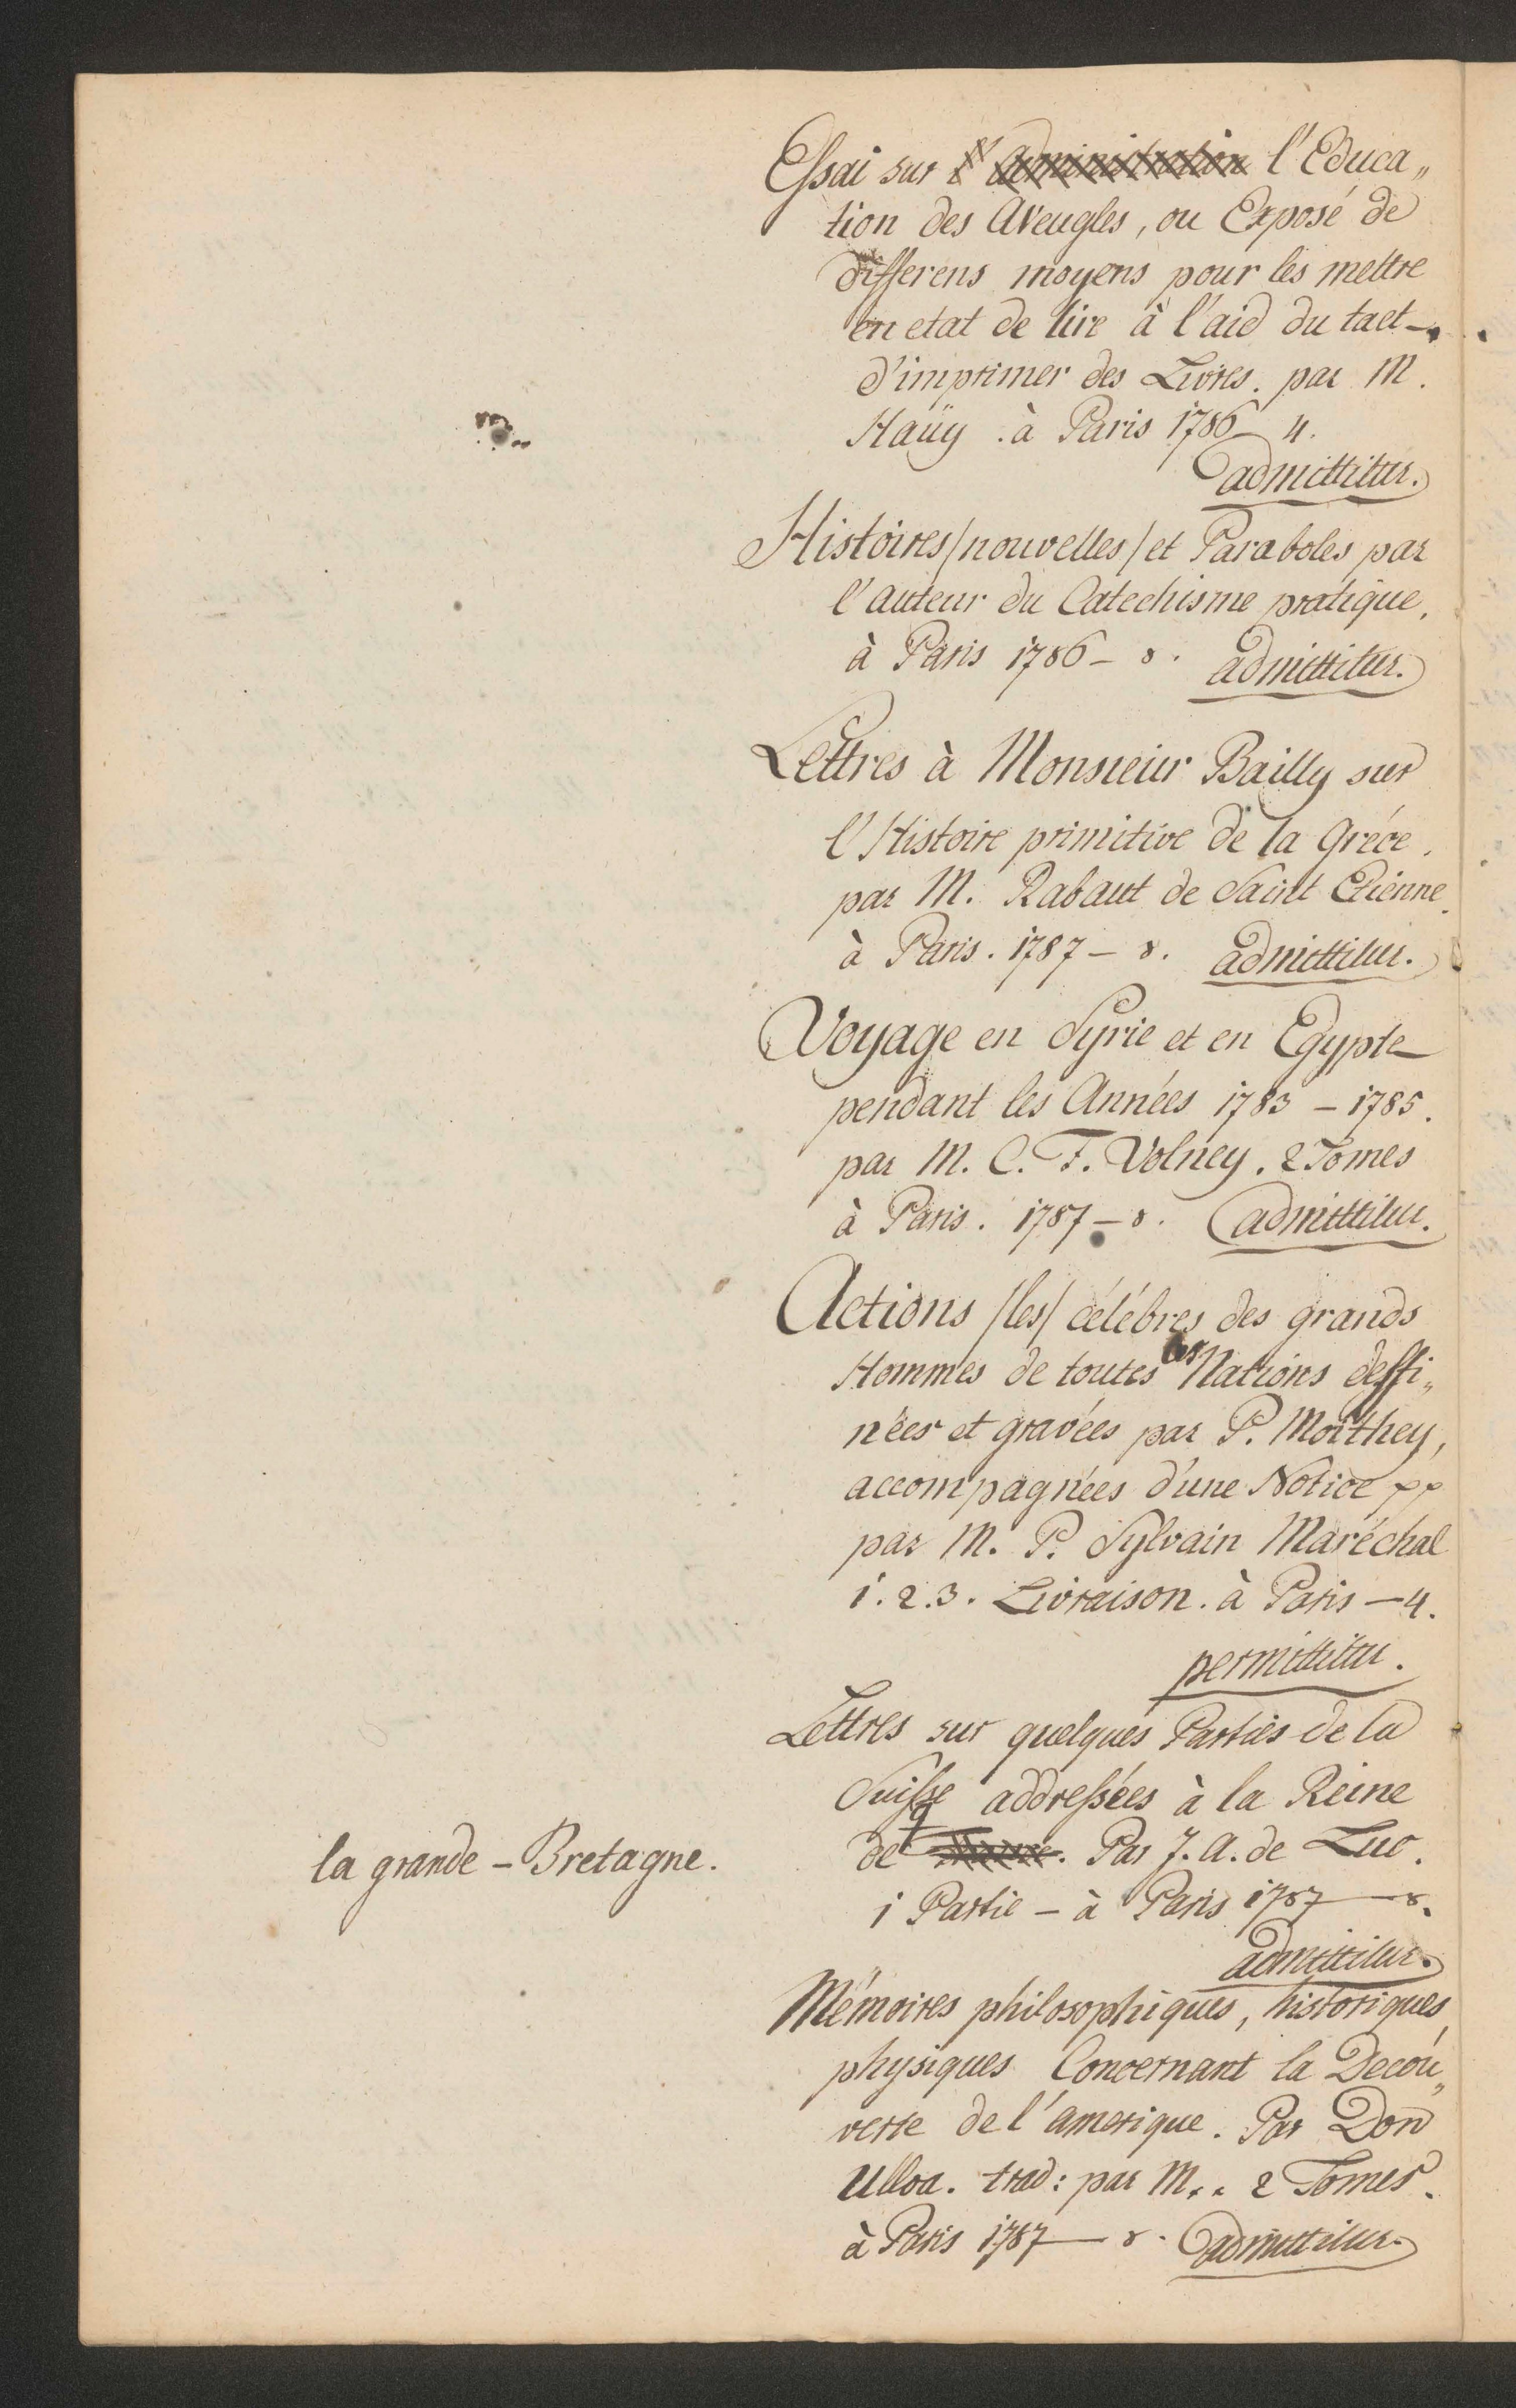 Essai sur l'administration l'Educa„
tion des Aveugles, ou Exposé de
differens moyens pour les mettre
en etat de lire à l'aid du tact –,
d'imprimer des Livres. par M.
Haüy. à Paris 1786 4.
admittitur.
Histoires/nouvelles/et Paraboles par
l'auteur du Catechisme pratique,
à Paris 1786 – 8. admittitur.
Lettres à Monsieur Bailly sur
l'Histoire primitive de la Gréce.
par M. Rabaut de Saint Etienne.
à Paris. 1787 – 8. admittitur.
Voyage en Syrie et en Egypte
pendant les Années 1783 – 1785.
par M. C. F. Volney. 2 Tomes
à Paris. 1787 – 8. admittitur.
Actions /les/ célébres des grands
Hommes de toutes les Nations dessi„
nées et gravées par P. Moithey,
accompagnées d'une Notice pp
par M. P. Sylvain Maréchal
1. 2. 3. Livraison. à Paris – 4.
permittitur.
Lettres sur quelques Parties de la
Suisse addressées à la Reine
de la grande – Bretagne. Par J. A. de Luc.
1 Partie – à Paris 1787 – 8.
admittitur.
Mémoires philosophiques, historiques,
physiques Concernant la Decou„
verte de l'amerique. Par Don
Ulloa. trad: par M.. 2 Tomes.
à Paris 1787 – 8. admittitur.